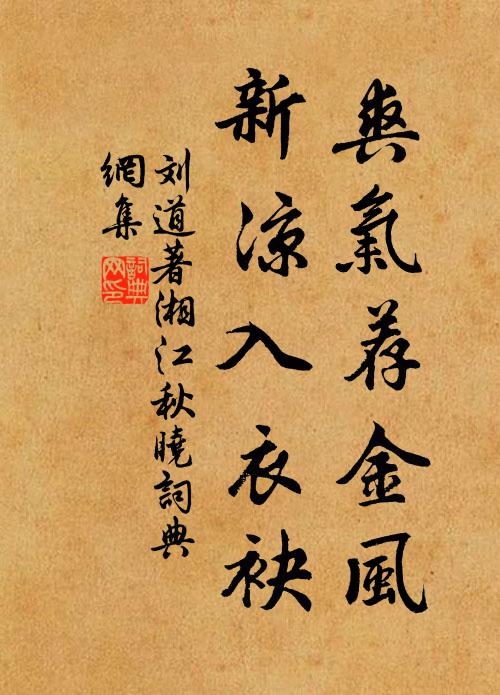 爽氣荐金風
新涼入衣袂
刘道著湘江秋曉詞典
網集
詞典網印